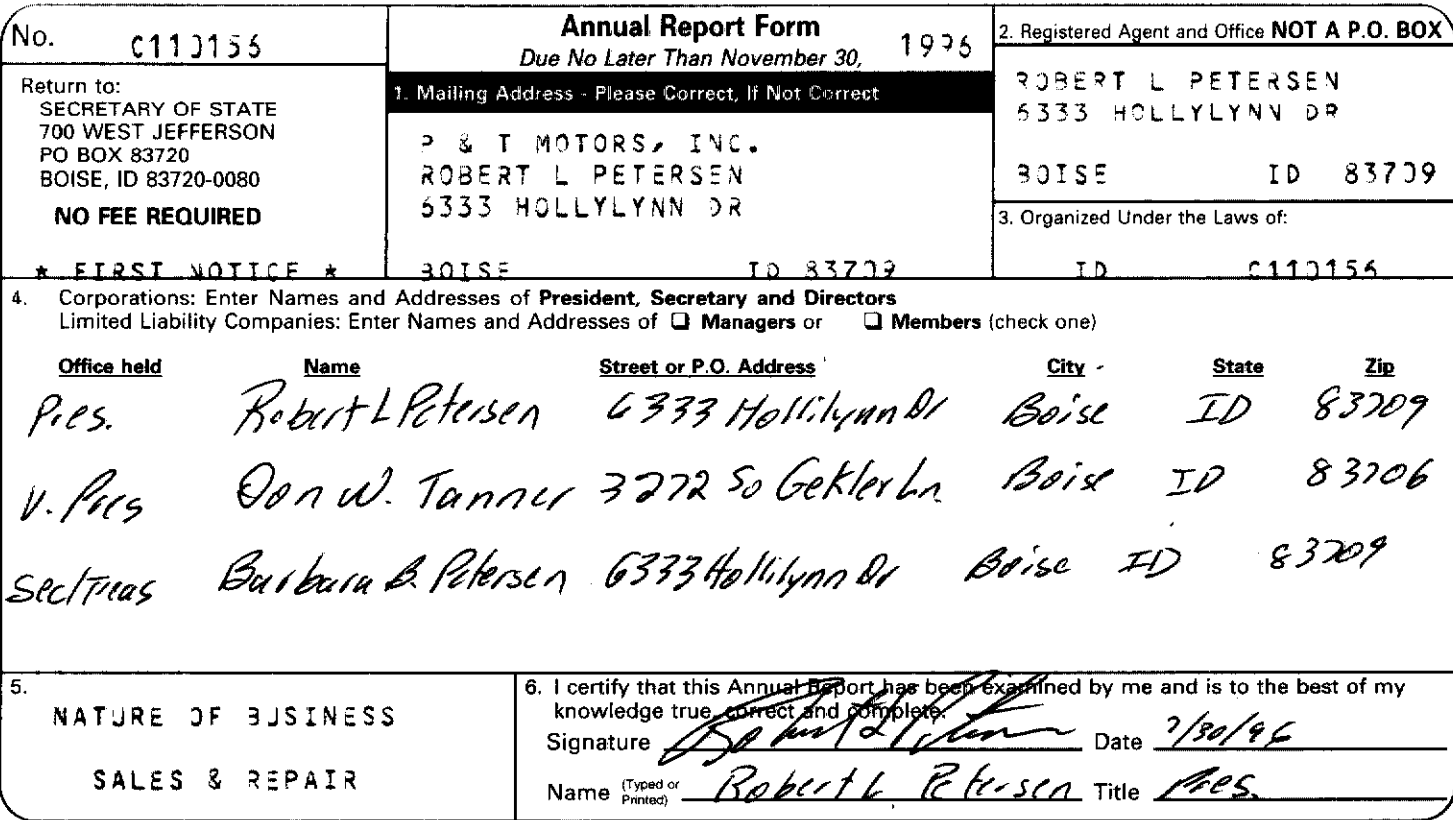 No. C110156
Annual Report Form
Due No Later Than November 30, 1996
Return to:
SECRETARY OF STATE
700 WEST JEFFERSON
PO BOX 83720
BOISE, ID 83720-0080
NO FEE REQUIRED
* FIRST NOTICE *
1. Mailing Address - Please Correct, If Not Correct
P & T MOTORS, INC.
ROBERT L PETERSEN
6333 HOLLYLYNN DR
BOISE ID 83709
2. Registered Agent and Office NOT A P.O. BOX
ROBERT L PETERSEN
6333 HOLLYLYNN DR
BOISE ID 83709
3. Organized Under the Laws of:
ID C110156
4. Corporations: Enter Names and Addresses of President, Secretary and Directors
Limited Liability Companies: Enter Names and Addresses of ❑ Managers or ❑ Members (check one)
Office held Name Street or P.O. Address City State Zip
Pres. Robert L Petersen 6333 Hollilynn Dr Boise ID 83709
V. Pres Don W. Tanner 3272 So Gekler Ln. Boise ID 83706
Sec/Treas Barbara B. Petersen 6333 Hollilynn Dr Boise ID 83709
5.
NATURE OF BUSINESS
SALES & REPAIR
6. I certify that this Annual Report has been examined by me and is to the best of my
knowledge true, correct and complete.
Signature Robert L Petersen Date 7/30/96
Name (Typed or Printed) Robert L Petersen Title Pres.